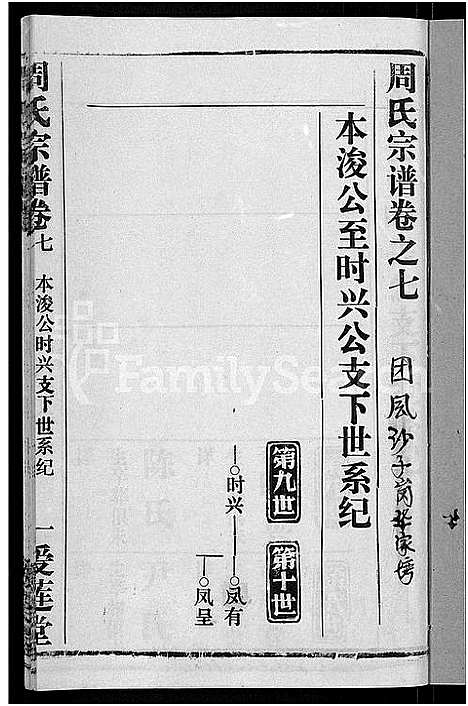 周氏宗谱卷之七
团风沙子岗
本浚公至时兴公支下世系纪
第九世
第十世
时兴
凤有
凤呈
周氏宗谱卷七
本浚公时兴支下世系纪
一
爱莲堂
FamilySearch